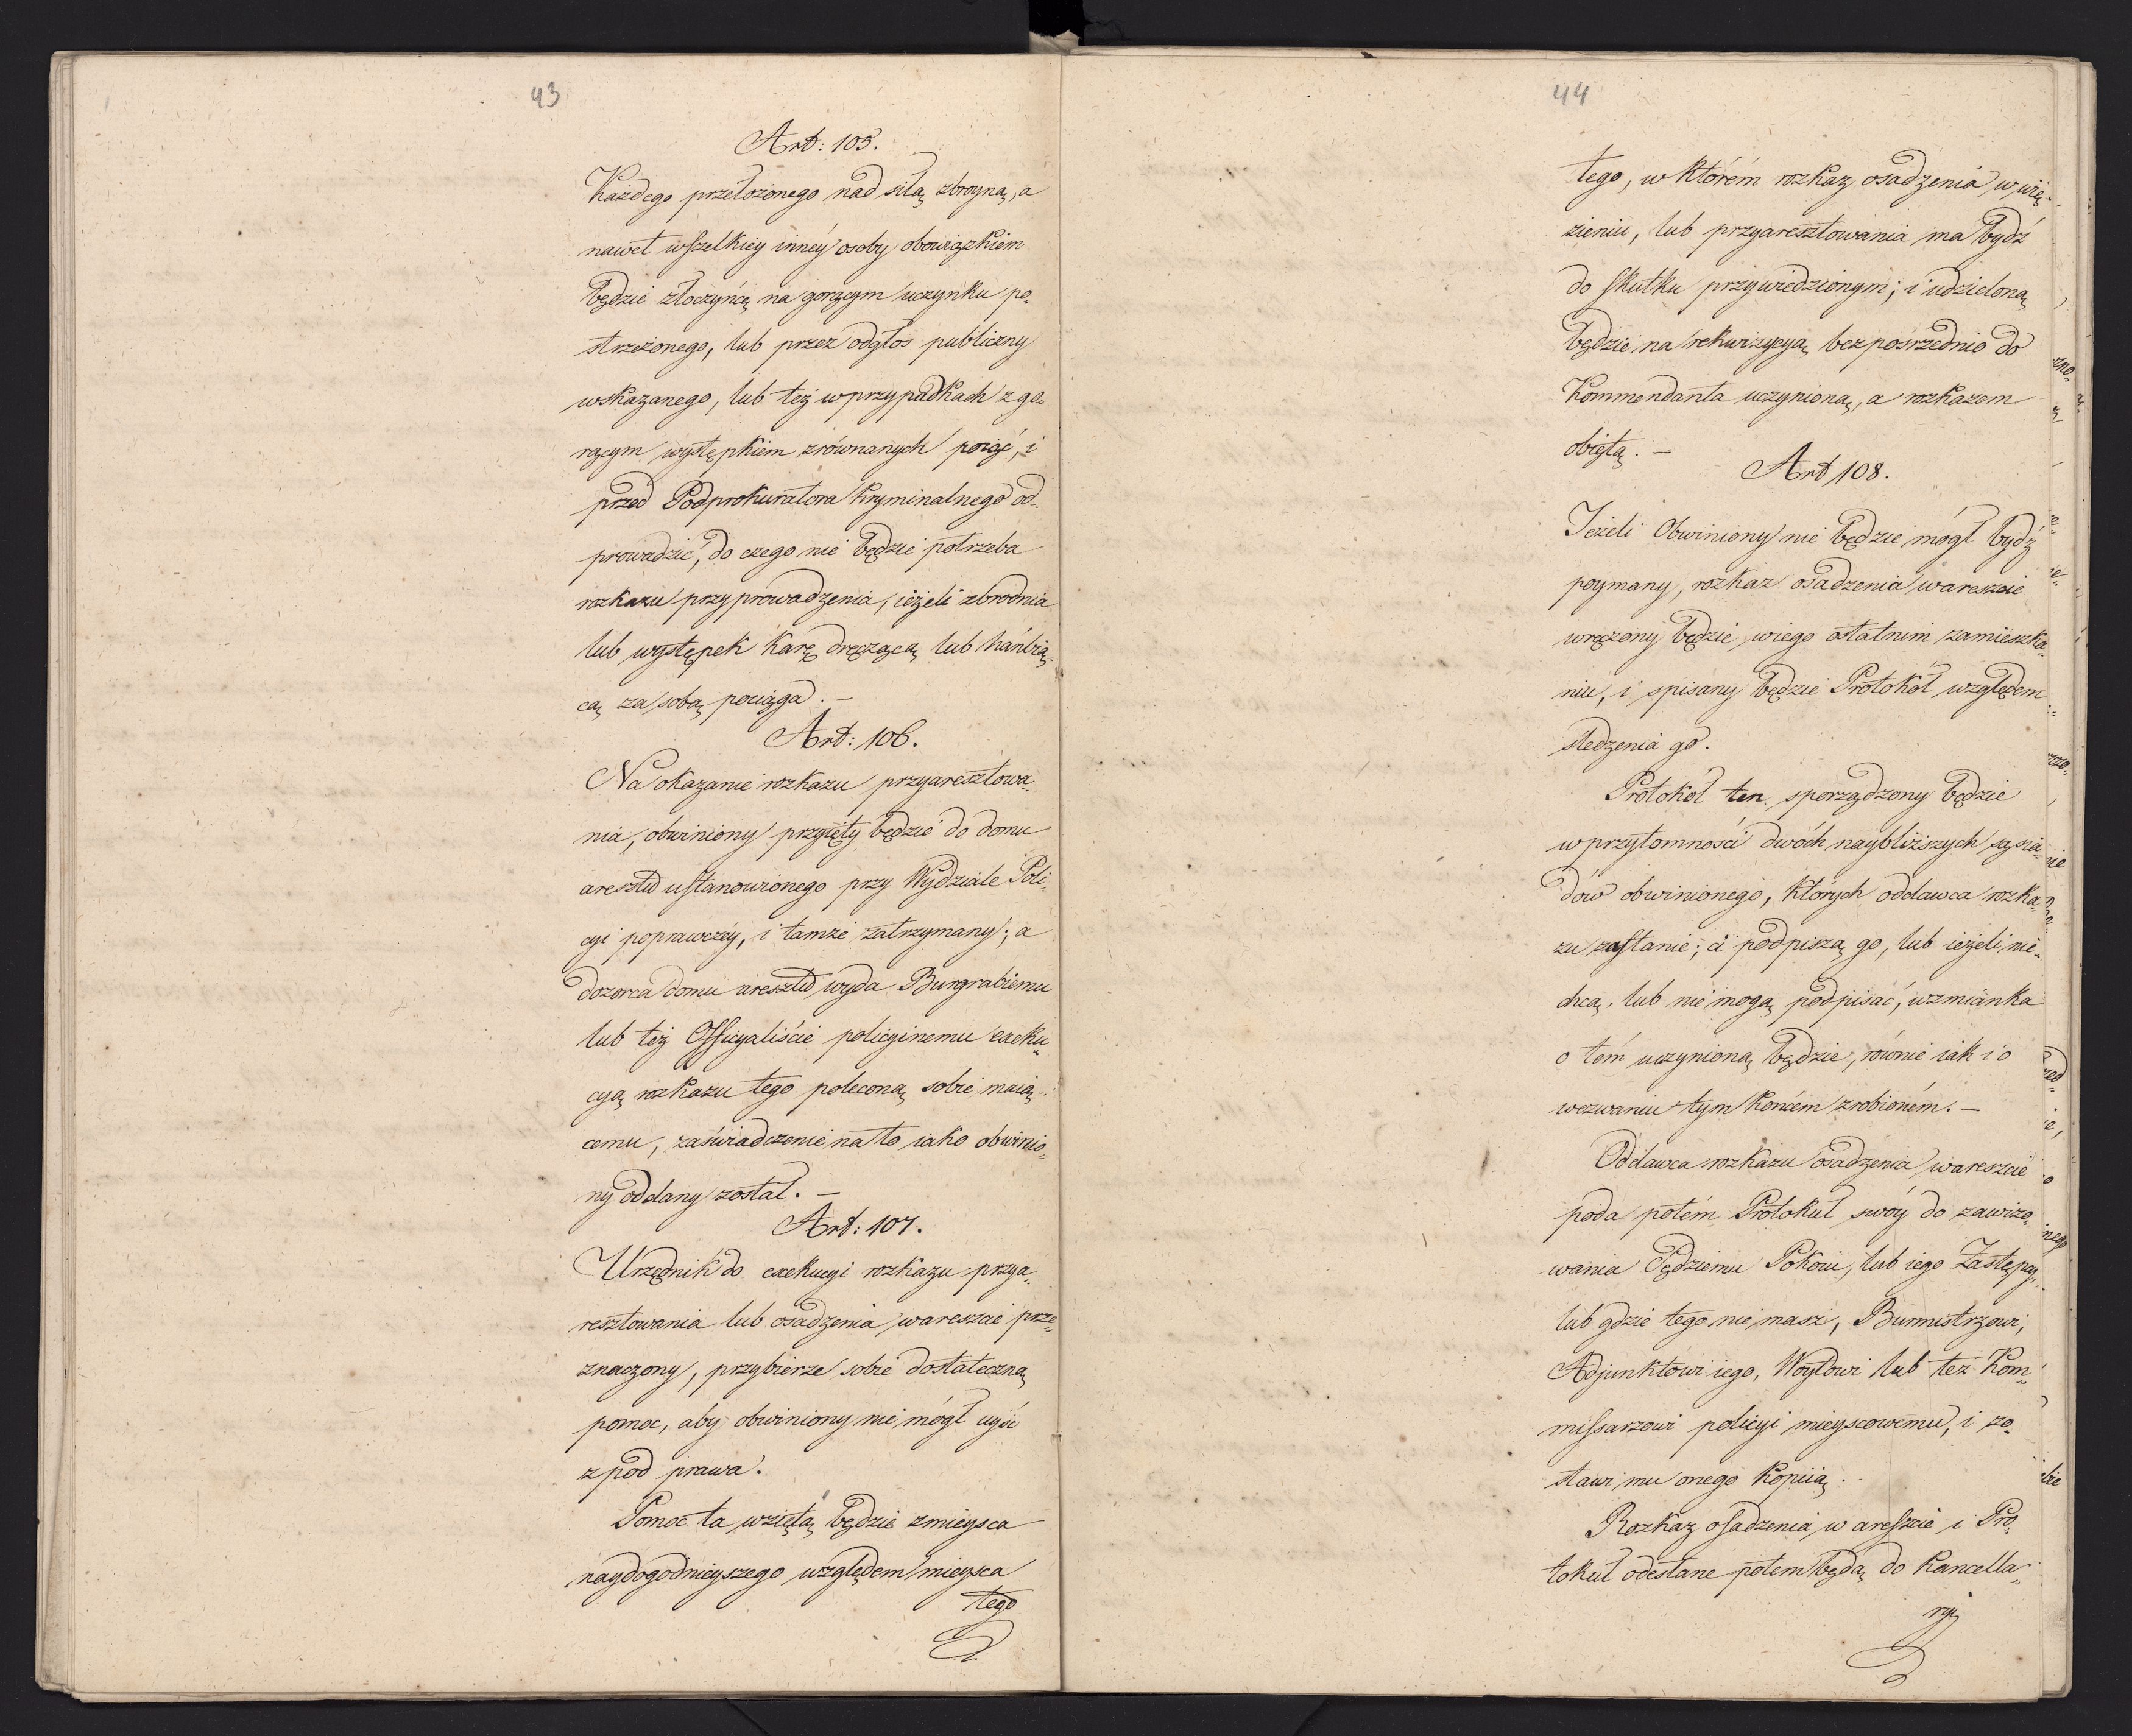 43
Art: 105.
Każdego przełożonego nad siłą zbroyną, a
nawet wszelkiey inney osoby obowiązkiem
będzie złoczyńcę na gorącym uczynku po„
strzeżonego, lub przez odgłos publiczny
wskazanego, lub też w przypadkach z go„
rącym występkiem zrównanych poiąć, i
przed Podprokuratora Kryminalnego od„
prowadzić, do czego nie będzie potrzeba
rozkazu przyprowadzenia, ieżeli zbrodnia
lub występek karę dręczącą lub hańbią„
cą za sobą pociąga. —
Art: 106.
Na okazanie rozkazu przyaresztowa„
nia, obwiniony przyięty będzie do domu
aresztu ustanowionego przy Wydziale Poli„
cyi poprawczéy, i tamże zatrzymany; a
dozorca domu aresztu wyda Burgrabiemu
lub też Officyaliście policyinemu exeku„
cyą rozkazu tego poleconą sobie maią„
cemu, zaświadczenie na to iako obwinio„
ny oddany został. —
Art: 107.
Urzędnik do exekucyi rozkazu przya„
resztowania lub osadzenia w areszcie prze„
znaczony, przybierze sobie dostateczną
pomoc, aby obwiniony nie mógł uyść
z pod prawa.
Pomoc ta wziętą będzie z mieysca
naydogodnieyszego względem mieysca
tego
44
tego, w którém rozkaz osadzenia w wię„
zieniu, lub przyaresztowania ma bydź
do skutku przywiedzionym; i udzieloną
będzie na rekwizycyą bezpośrzednio do
Kommendanta uczynioną, a rozkazem
obiętą. —
Art 108.
Jeżeli Obwiniony nie będzie mógł bydź
poymany, rozkaz osadzenia w areszcie
wręczony będzie w iego ostatnim zamieszka„
niu, i spisany będzie Protokół względem
śledzenia go.
Protokół ten sporządzony będzie
w przytomności dwóch naybliższych sąsia„
dów obwinionego, których oddawca rozka„
zu zastanie; a podpiszą go, lub ieżeli nie„
chcą, lub nie mogą podpisać, wzmianka
o tém uczynioną będzie, równie iak i o
wezwaniu tym końcem zrobioném. —
Oddawca rozkazu osadzenia w areszcie
poda potém Protokuł swóy do zawizo„
wania Sędziemu Pokoiu, lub iego Zastępcy,
lub gdzie tego nie masz, Burmistrzowi,
Adjunktowi iego, Woytowi lub też Kom„
missarzowi policyi mieyscowemu, i zo„
stawi mu onego kopiią.
Rozkaz osadzenia w areszcie i Pro„
tokuł odesłane potem będą do Kancella„
ryi